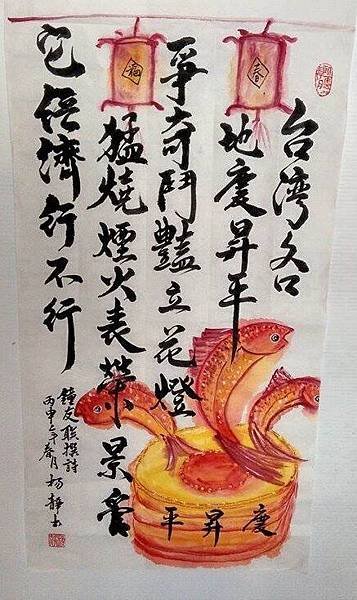 春
福
台湾各
地慶昇平
爭奇鬥豔立花燈
猛燒煙火表榮景管
它經濟行不行
鐘友聯撰詩
丙申之年春月楊靜書
慶昇平